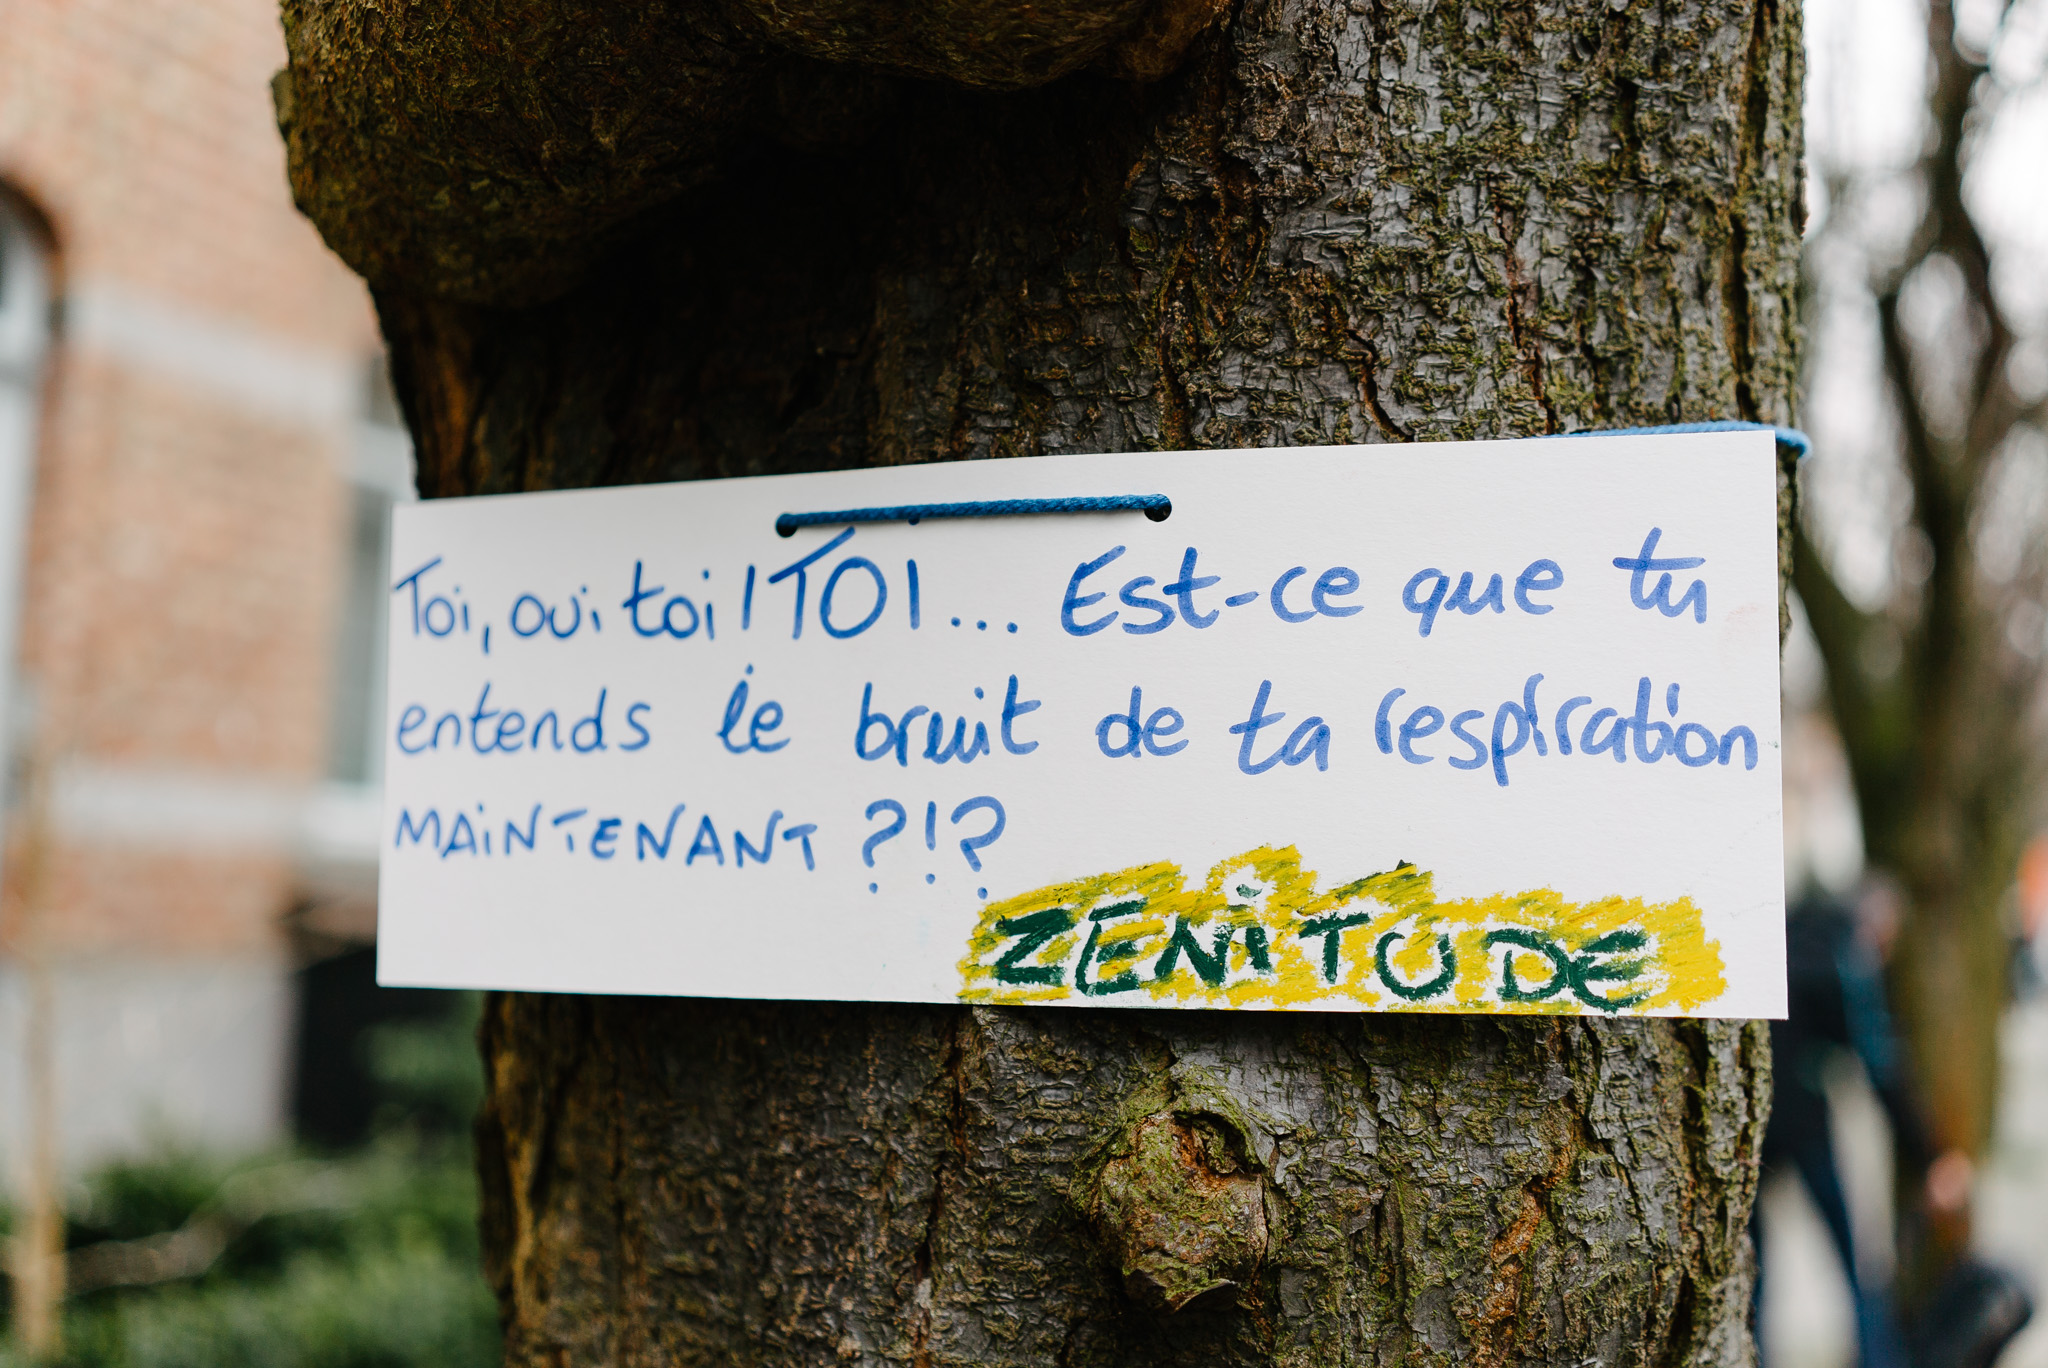 Toi, oui toi ! TOI... Est-ce que tu
entends le bruit de ta respiration
MAiNTENANT ?!?
ZENiTUDE